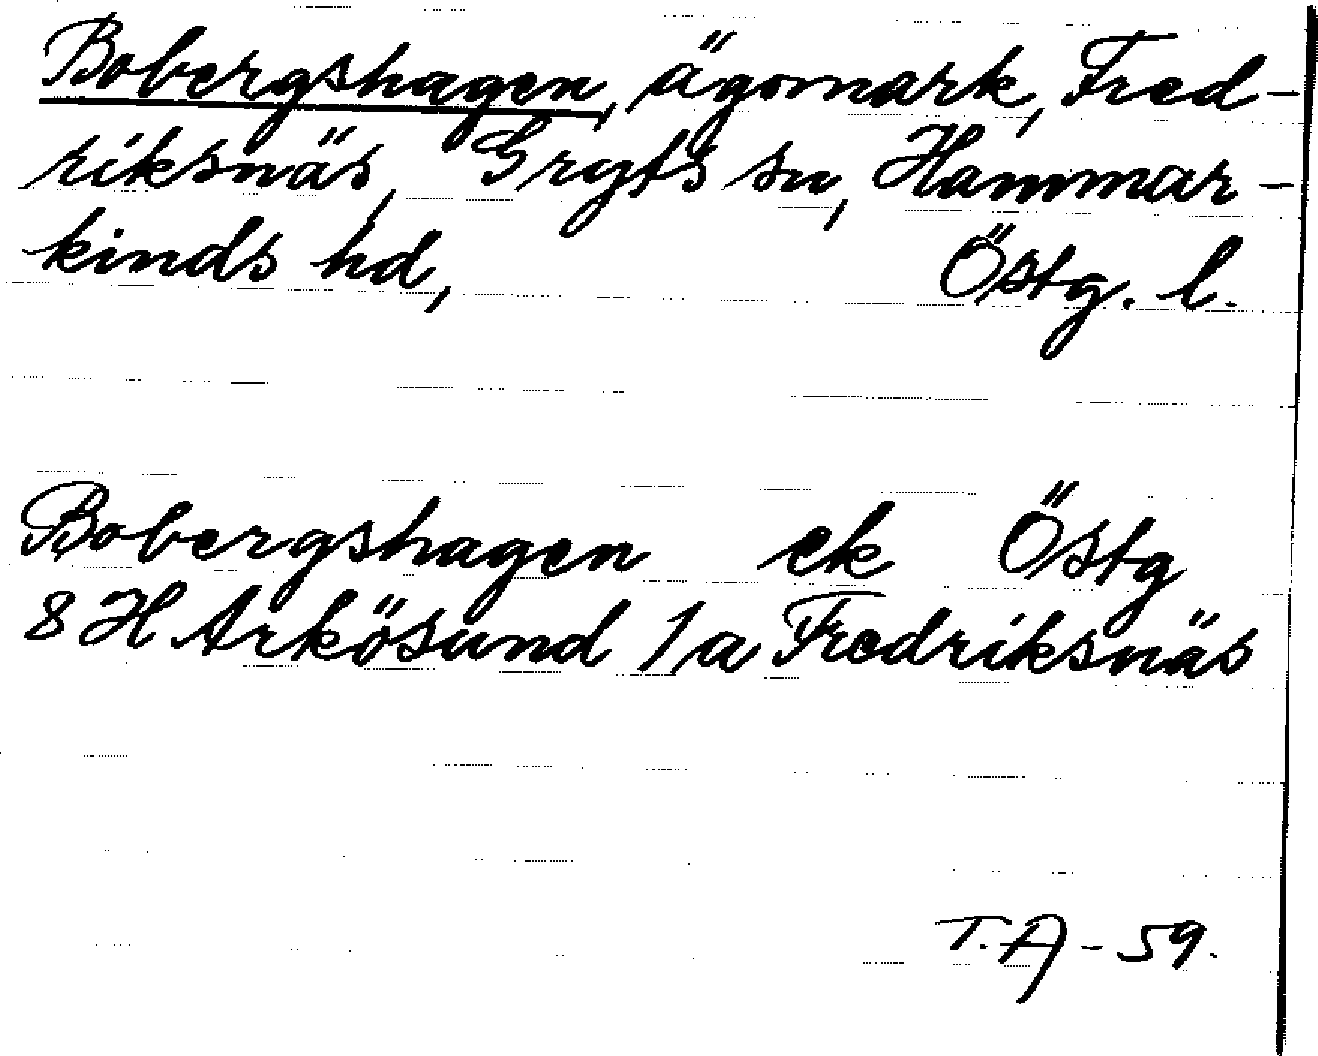 Bobergshagen, ägomark, Fred-
riksnäs, Gryts sn, Hammar-
kinds hd, Östg. l.
Bobergshagen ek Östg
8 H Arkösund 1 a Fredriksnäs
T. A - 59.